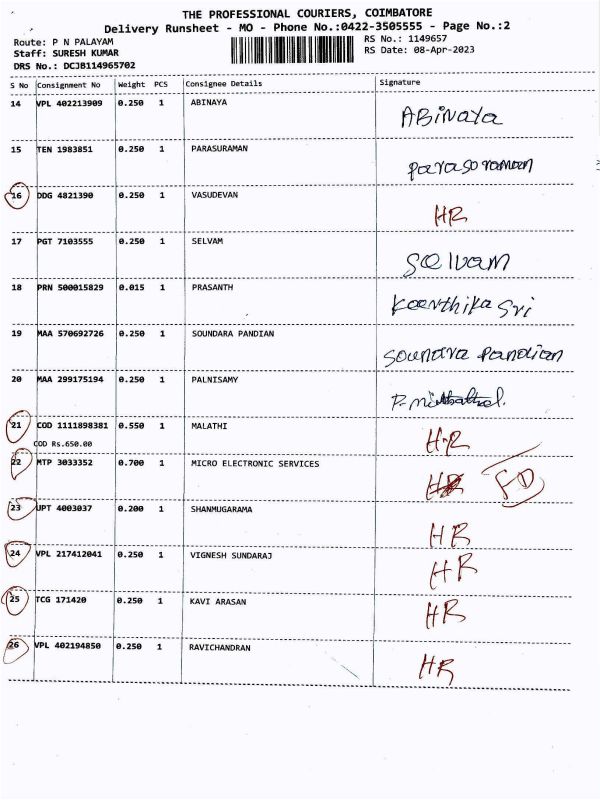 THE PROFESSIONAL COURIERS, COIMBATORE
Delivery Runsheet - MO - Phone No.:0422-3505555 - Page No.:2
Route: P N PALAYAM RS No.: 1149657
Staff: SURESH KUMAR RS Date: 08-Apr-2023
DRS No.: DCJB114965702
S No Consignment No Weight PCS Consignee Details Signature
14 VPL 402213909 0.250 1 ABINAYA ABiNaya
15 TEN 1983851 0.250 1 PARASURAMAN parasoraman
16 DDG 4821390 0.250 1 VASUDEVAN HR
17 PGT 7103555 0.250 1 SELVAM Selvam
18 PRN 500015829 0.015 1 PRASANTH Keerthika Sri
19 MAA 570692726 0.250 1 SOUNDARA PANDIAN Soundra Pandian
20 MAA 299175194 0.250 1 PALNISAMY
21 COD 1111898381 0.550 1 MALATHI HR
COD Rs.650.00
22 MTP 3033352 0.700 1 MICRO ELECTRONIC SERVICES HR
23 UPT 4003037 0.200 1 SHANMUGARAMA HR
24 VPL 217412041 0.250 1 VIGNESH SUNDARAJ HR
25 TCG 171420 0.250 1 KAVI ARASAN HR
26 VPL 402194850 0.250 1 RAVICHANDRAN HR